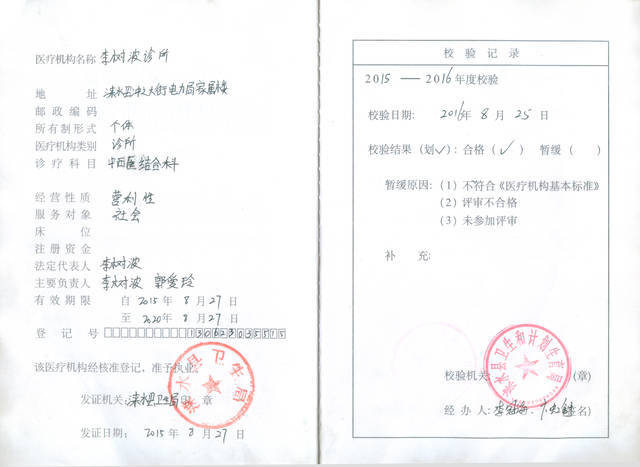 医疗机构名称 李树波诊所
地 址 涞水县中大街电力局家属楼
邮政编码
所有制形式 个体
医疗机构类别 诊所
诊疗科目 中西医结合科
经营性质 营利性
服务对象 社会
床 位
注册资金
法定代表人 李树波
主要负责人 李树波 郭爱玲
有效期限 自 2015 年 8 月 27 日
至 2020 年 8 月 27 日
登 记 号
该医疗机构经核准登记,准予执业。
发证机关: 涞水县卫生局 章
发证日期: 2015 年 8 月 27 日
涞水县卫生局
校验记录
2015 — 2016 年度校验
校验日期: 2016 年 8 月 25 日
校验结果(划✓):合格(✓) 暂缓( )
暂缓原因:(1)不符合《医疗机构基本标准》
(2)评审不合格
(3)未参加评审
补 充:
涞水县卫生和计划生育局
校验机关: (章)
经 办 人: (签名)